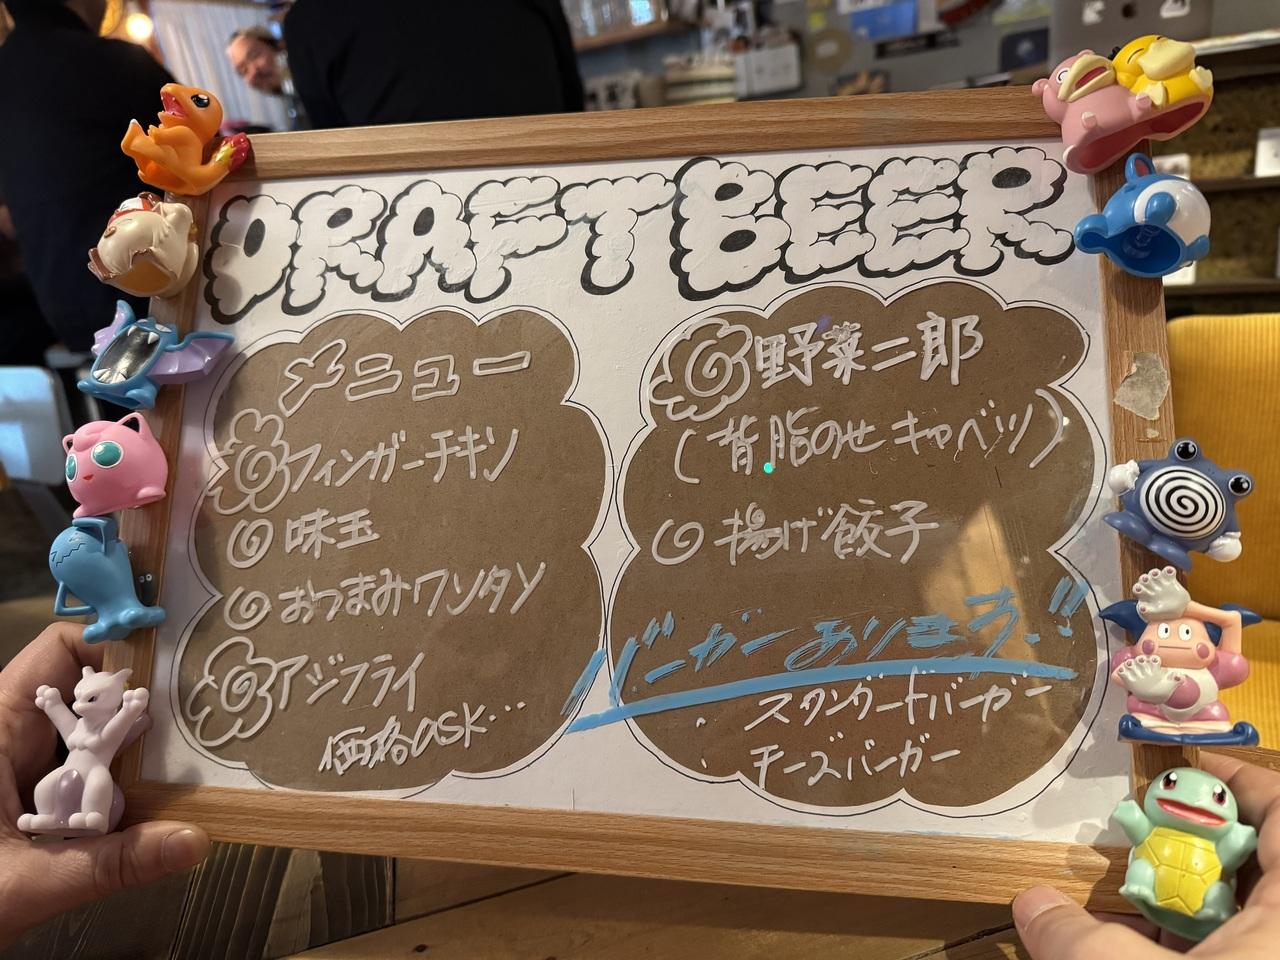 DRAFT BEER
メニュー
フィンガーチキン
味玉
おつまみワンタン
アジフライ
価格ask…
野菜二郎
(背脂のせキャベツ)
揚げ餃子
バーガーあります!!
スタンダードバーガー
チーズバーガー